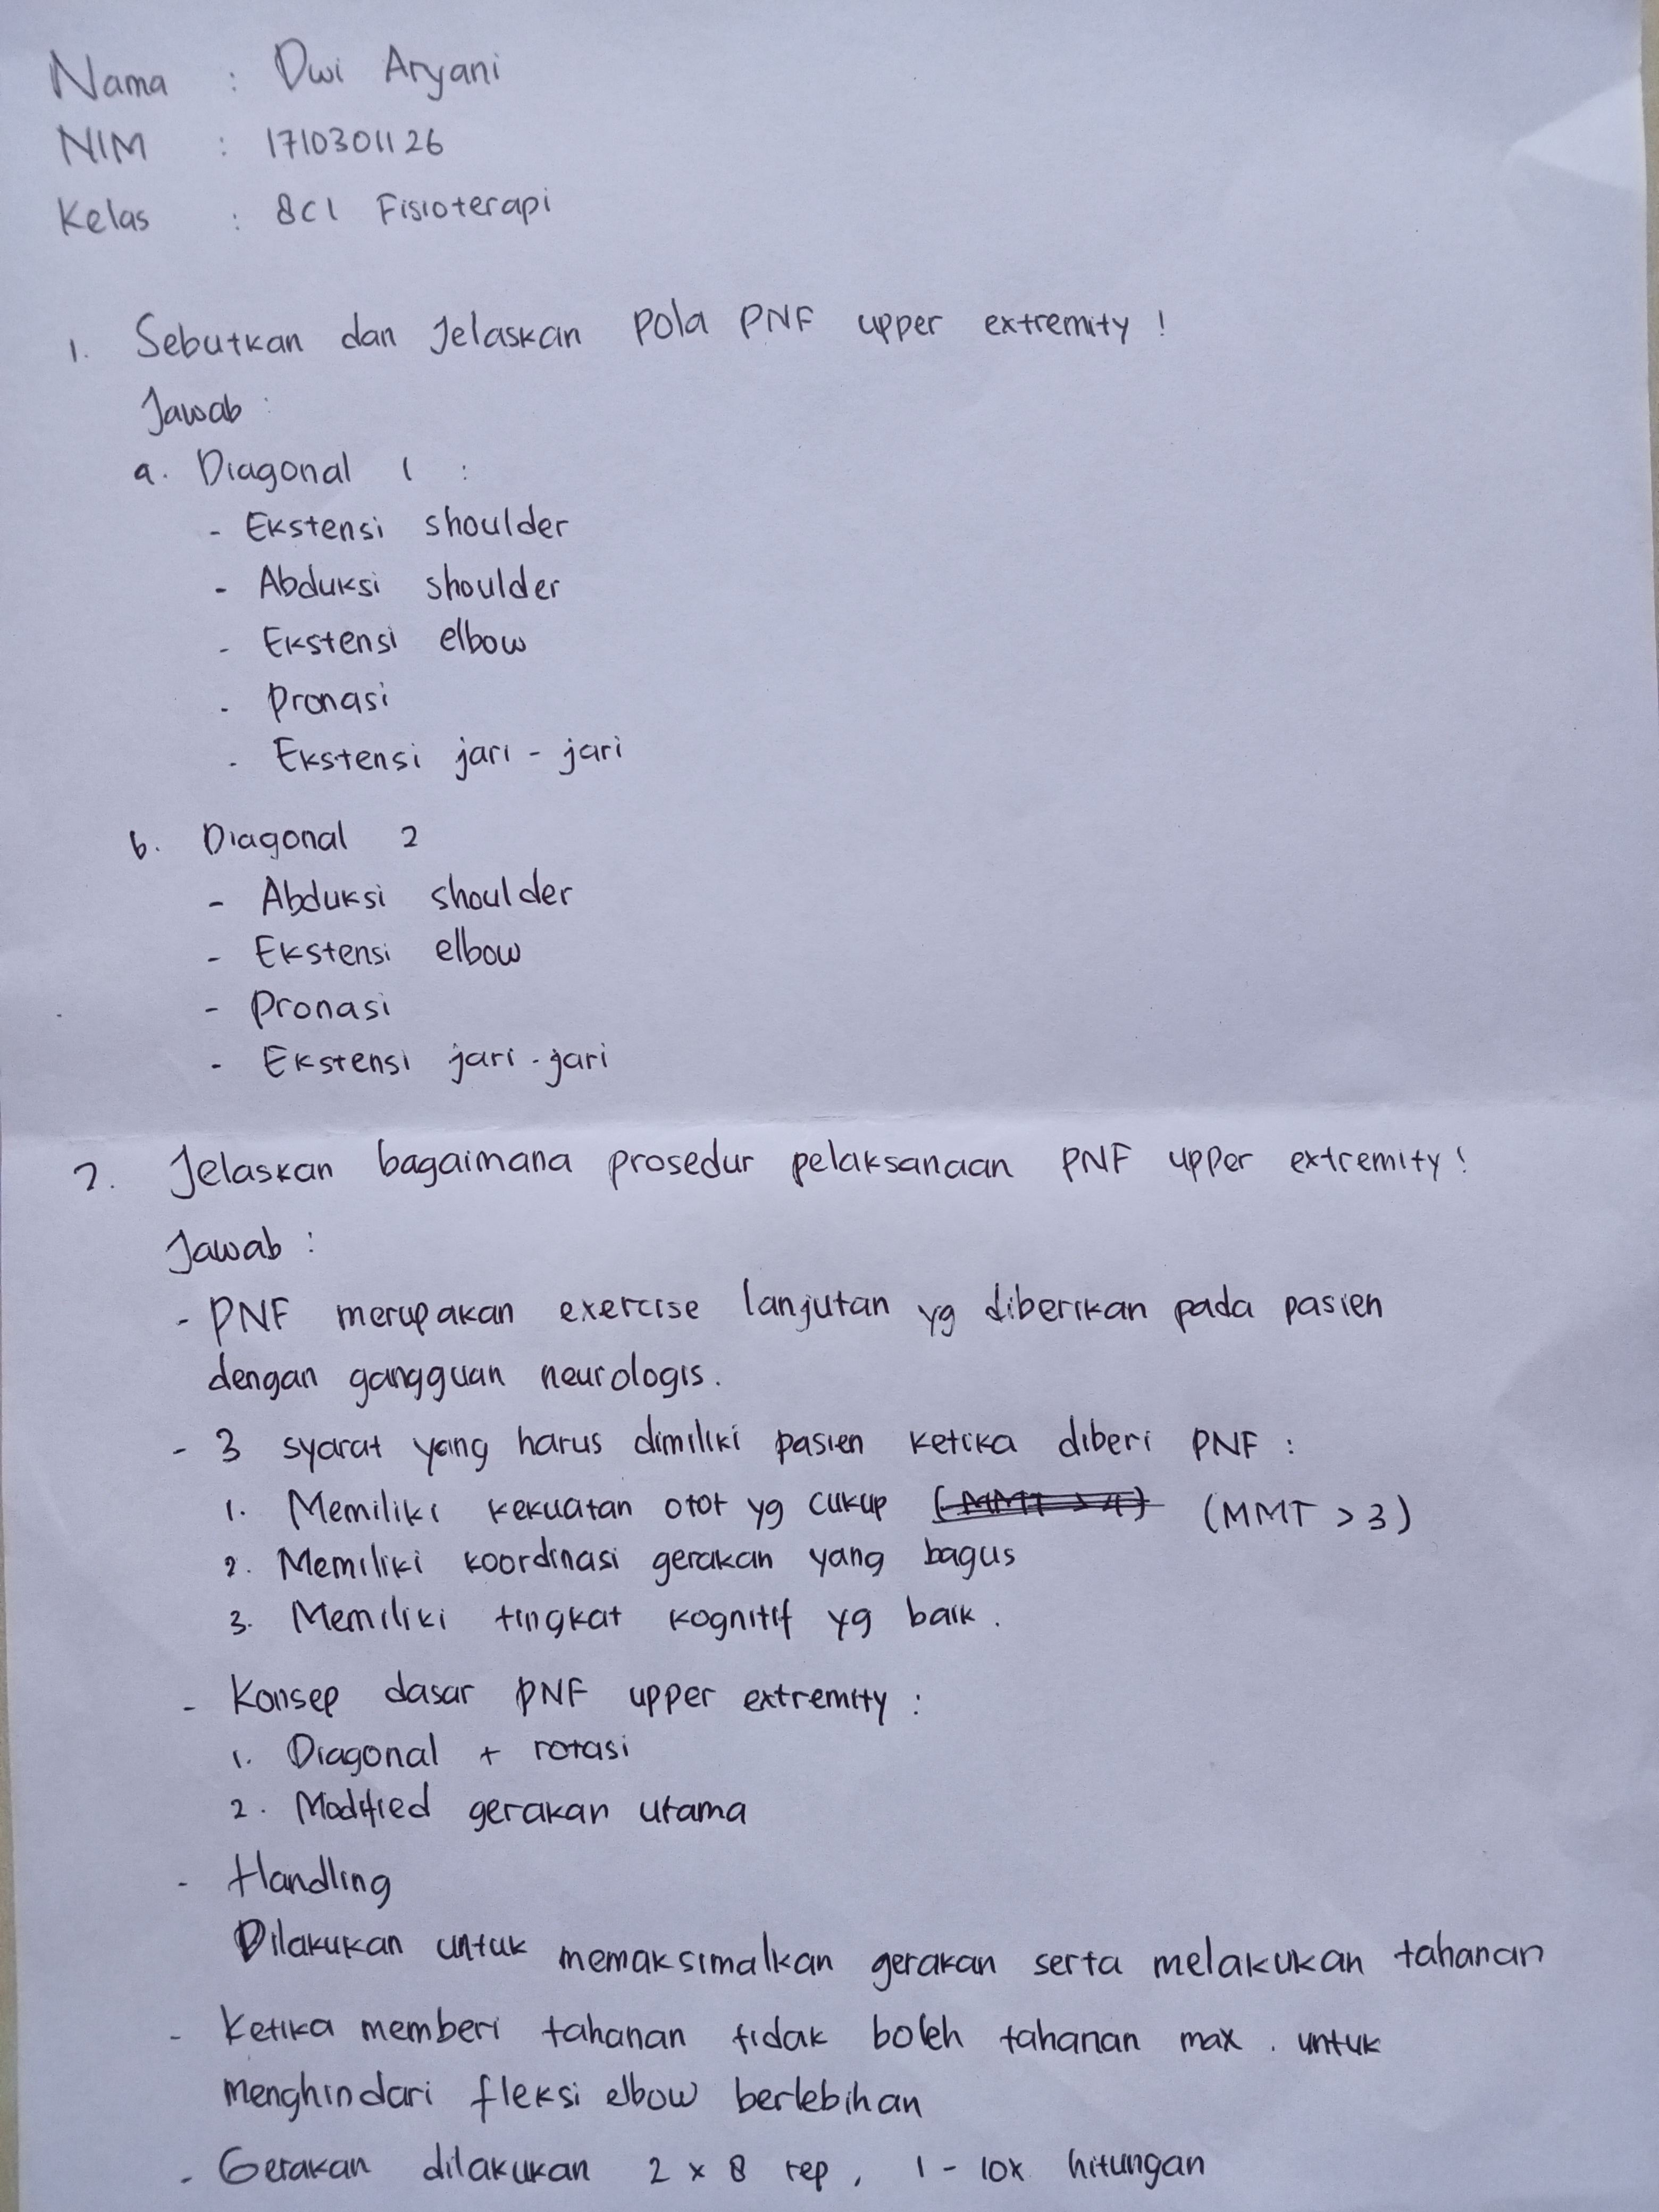 Nama : Dwi Aryani
NIM : 1710301126
Kelas : 8C1 Fisioterapi
1. Sebutkan dan Jelaskan pola PNF upper extremity !
Jawab :
a. Diagonal 1 :
- Ekstensi shoulder
- Abduksi shoulder
- Ekstensi elbow
- Pronasi
- Ekstensi jari - jari
b. Diagonal 2
- Abduksi shoulder
- Ekstensi elbow
- Pronasi
- Ekstensi jari - jari
2. Jelaskan bagaimana prosedur pelaksanaan PNF upper extremity !
Jawab :
- PNF merupakan exercise lanjutan yg diberikan pada pasien
dengan gangguan neurologis.
- 3 syarat yang harus dimiliki pasien ketika diberi PNF :
1. Memiliki kekuatan otot yg cukup (MMT > 4) (MMT > 3)
2. Memiliki koordinasi gerakan yang bagus
3. Memiliki tingkat kognitif yg baik .
- Konsep dasar PNF upper extremity :
1. Diagonal + rotasi
2. Modified gerakan utama
- Handling
Dilakukan untuk memaksimalkan gerakan serta melakukan tahanan
- Ketika memberi tahanan tidak boleh tahanan max . untuk
menghindari fleksi elbow berlebihan
- Gerakan dilakukan 2 x 8 rep , 1 - 10x hitungan